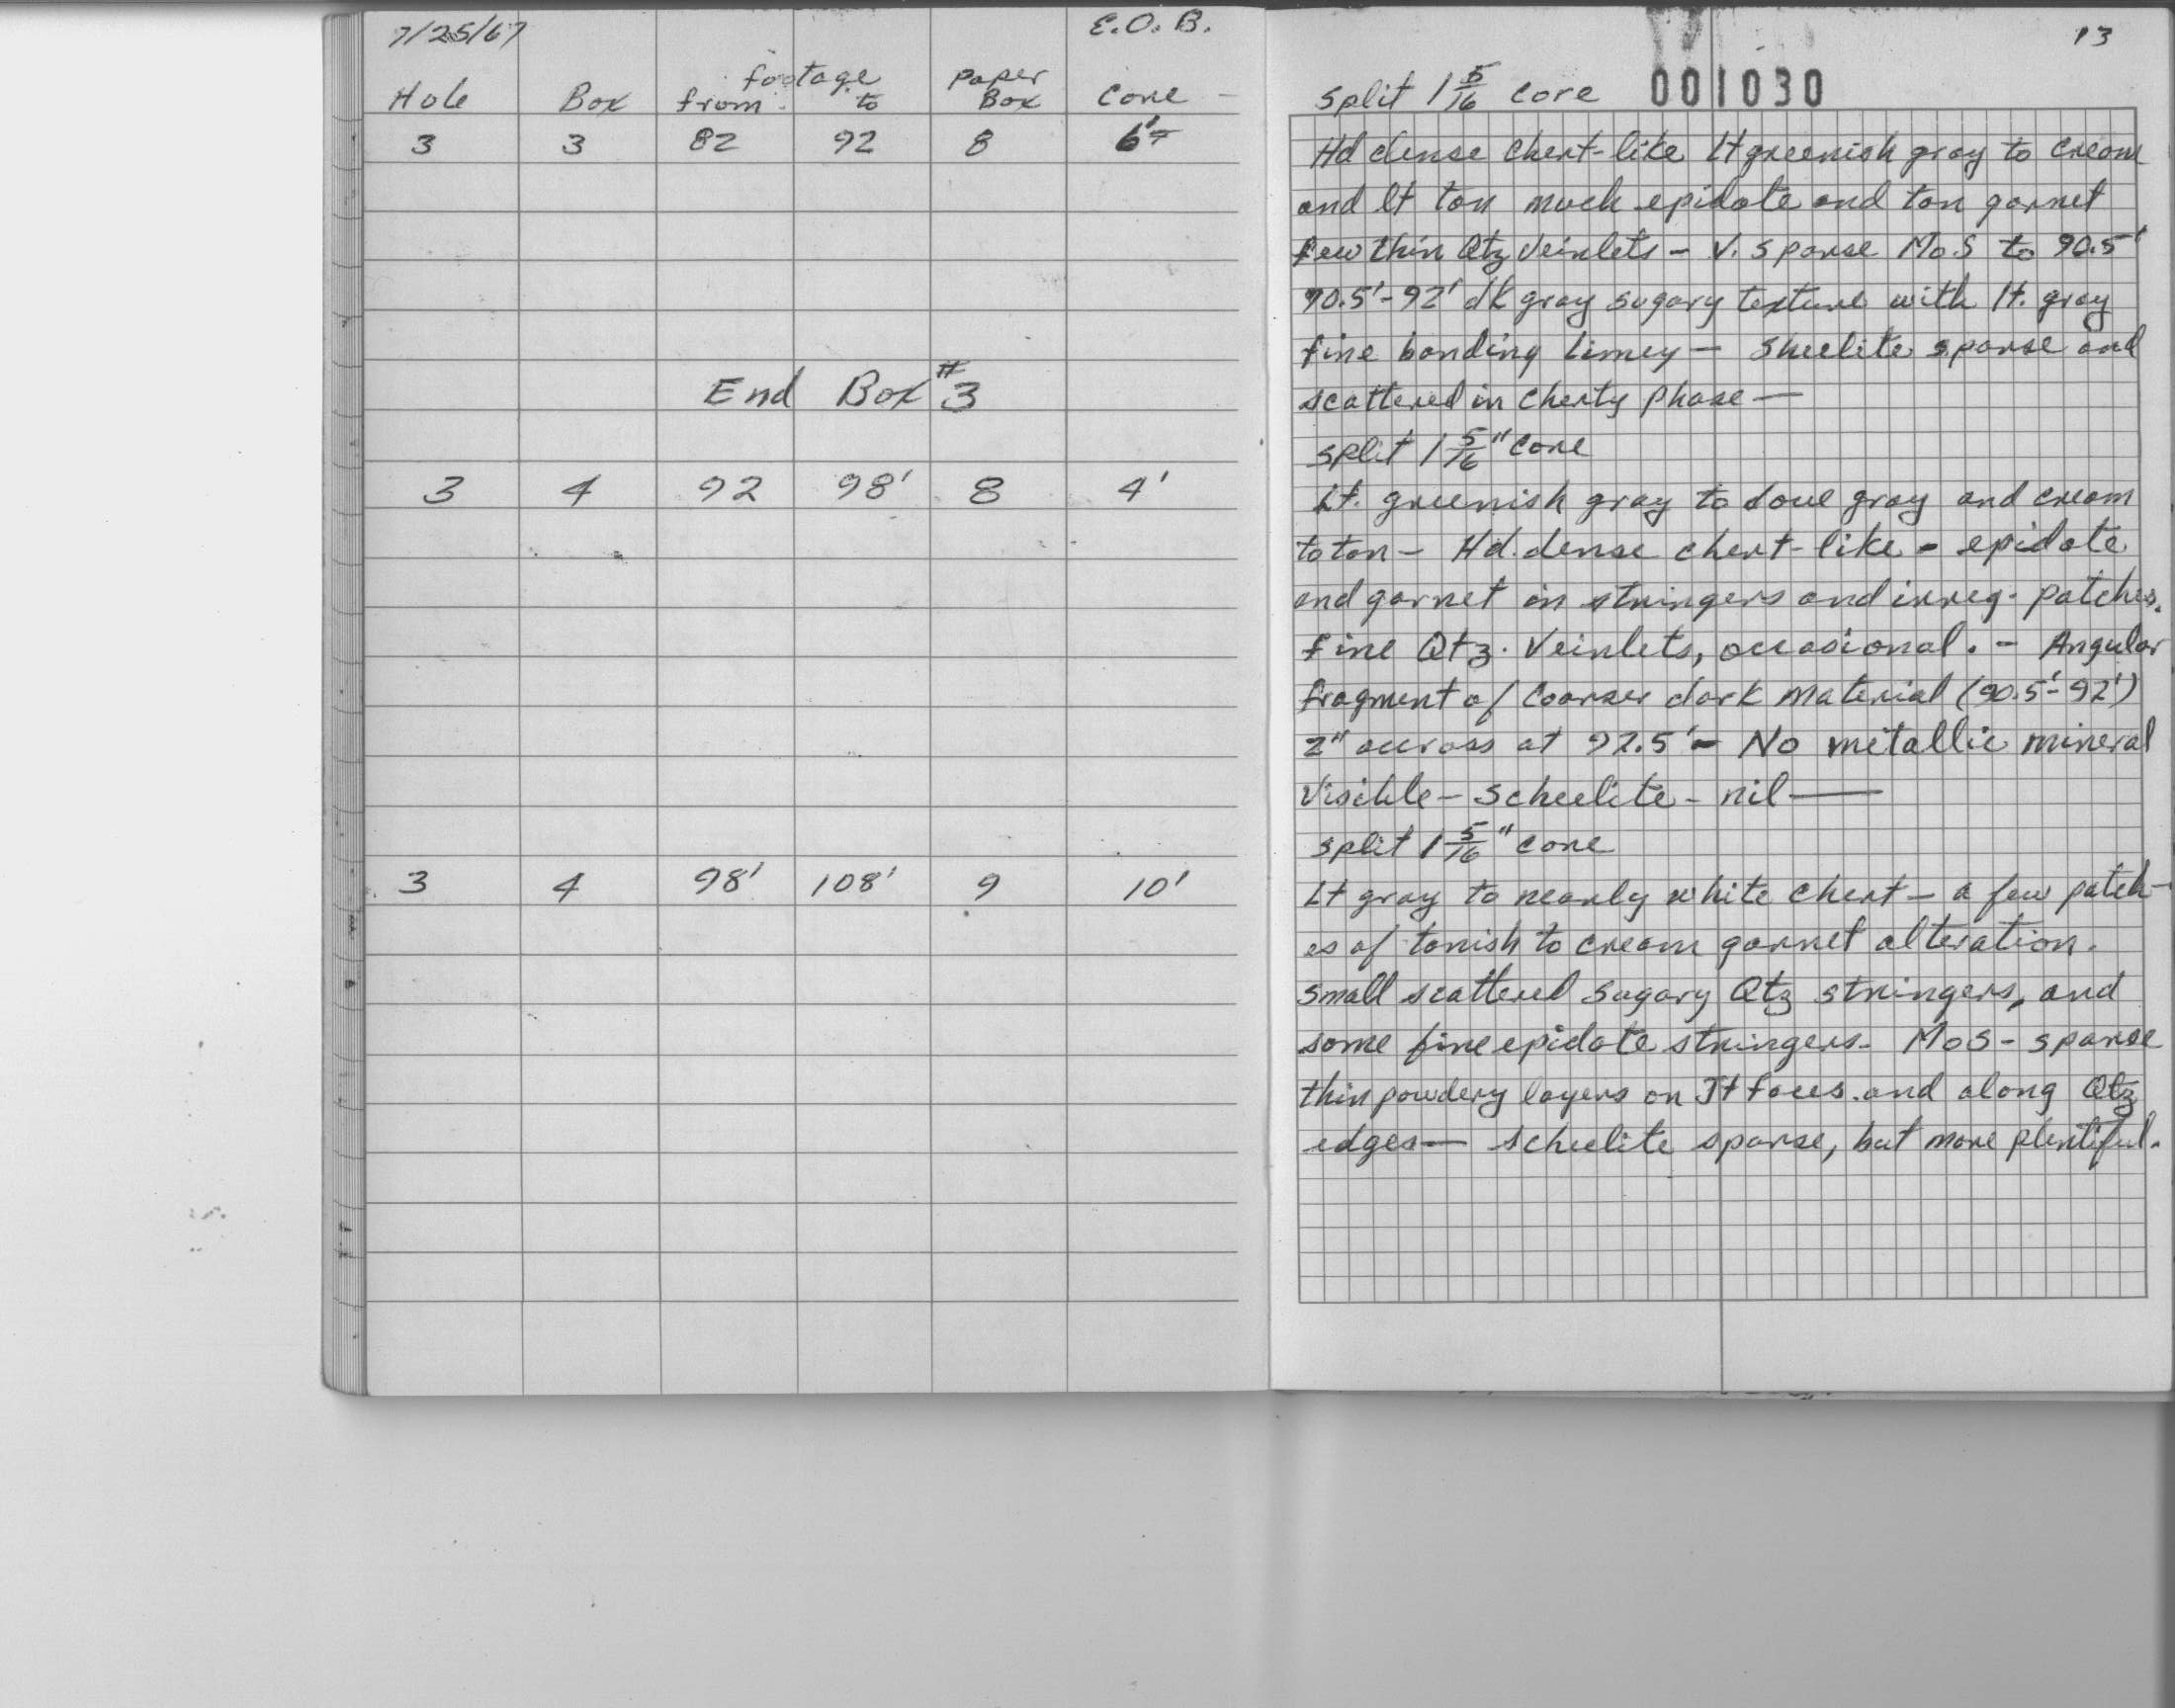 7/25/67 E.O.B.
footage paper
Hole Box from to Box Core
3 3 82 92 8 6'
End Box #3
3 4 92 98' 8 4'
3 4 98' 108' 9 10'
13
split 1 5/16 core 001030
Hd dense chert-like lt greenish gray to cream
and lt tan much epidote and tan garnet
few thin Qtz veinlets - V. sparse MoS to 90.5'
90.5'-92' dk gray sugary texture with lt. gray
fine banding limey - Sheelite sparse and
scattered in cherty phase —
split 1 5/16" core
Lt. greenish gray to dove gray and cream
to tan - Hd. dense chert-like - epidote
and garnet in stringers and irreg. patches.
fine Qtz. Veinlets, occasional. - Angular
fragment of coarser dark material (90.5'-92')
2" accross at 92.5' - No metallic mineral
visible - scheelite - nil —
split 1 5/16" core
Lt gray to nearly white chert - a few patch-
es of tanish to cream garnet alteration.
small scattered sugary Qtz stringers, and
some fine epidote stringers - MoS - sparse
thin powdery layers on Jt faces and along Qtz
edges — scheelite sparse, but more plentiful.